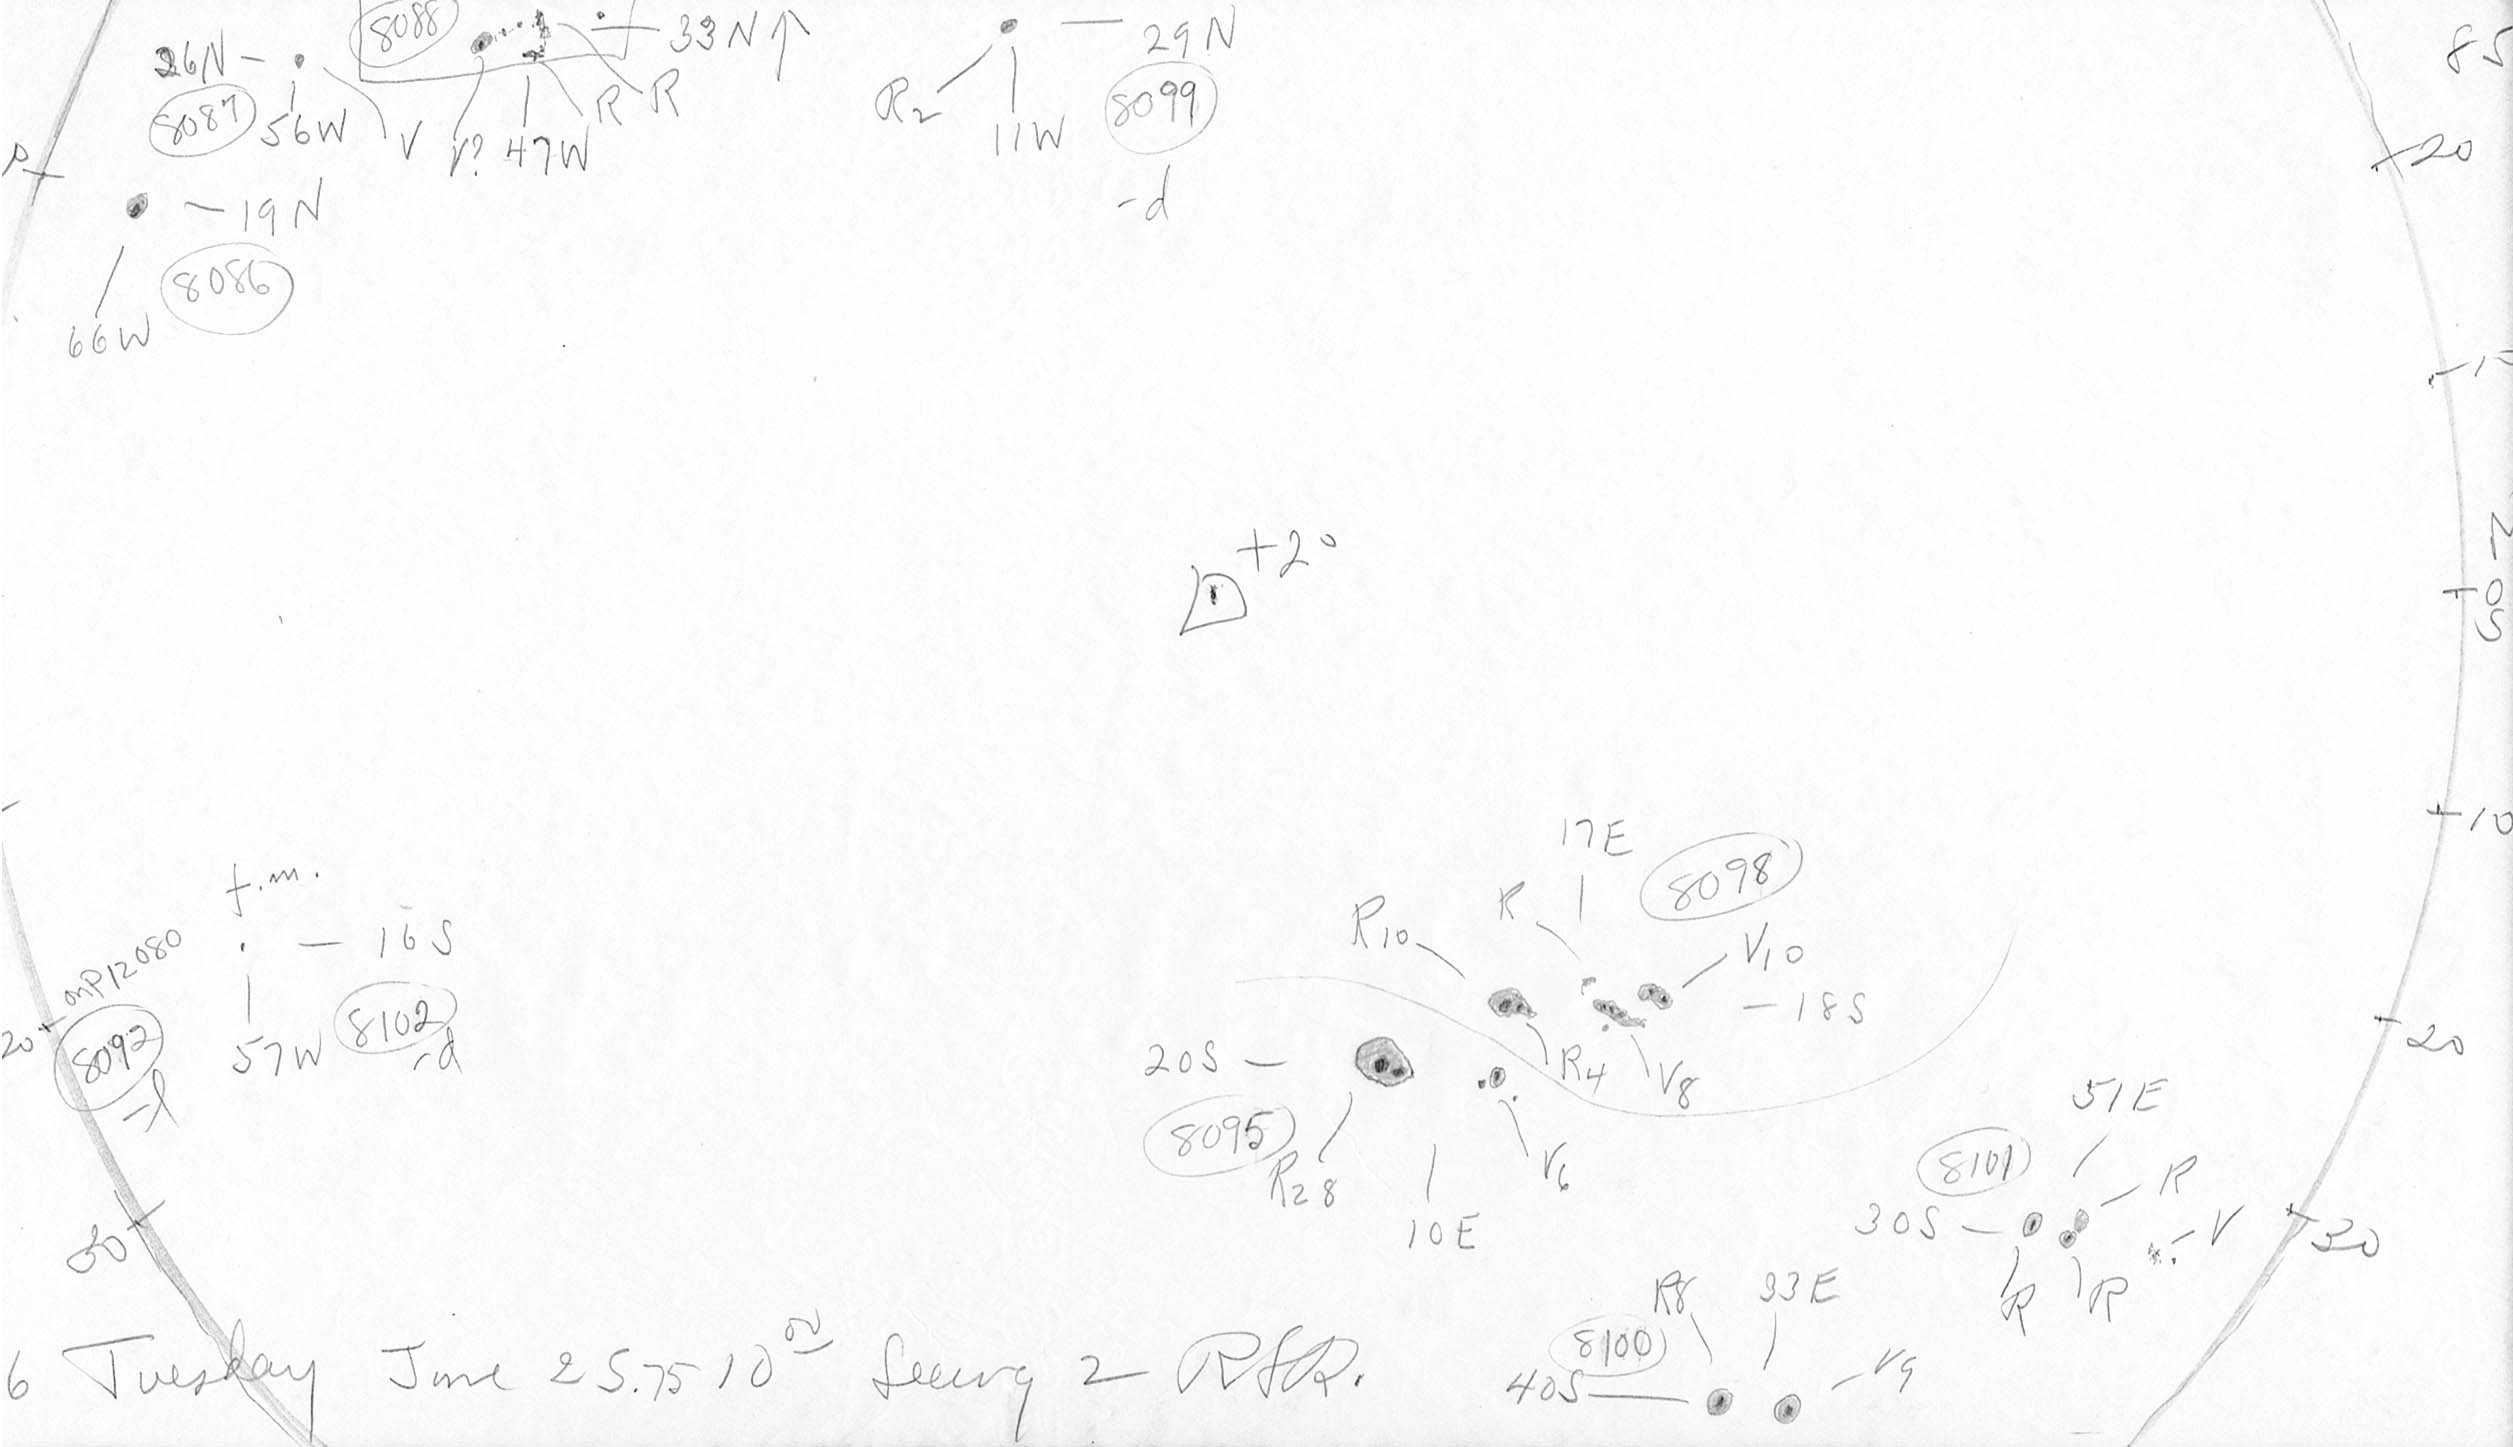 26N 8088 33N↑ 29N 85
8087 56W V V? 47W R R R2 11W 8099 20
-d
19N
8086
66W
+2°
N
0
S
10
17E 8098
f.m.
R10 R V10
16S
18S
8092 57W 8102 -d 20
20
20S R4 V8
8095 R28 10E V6
51E
8101 R
30S V
30 R R 30
R8 33E
8100
40S V9
6 Tuesday June 25.75 10 00 Seeing 2